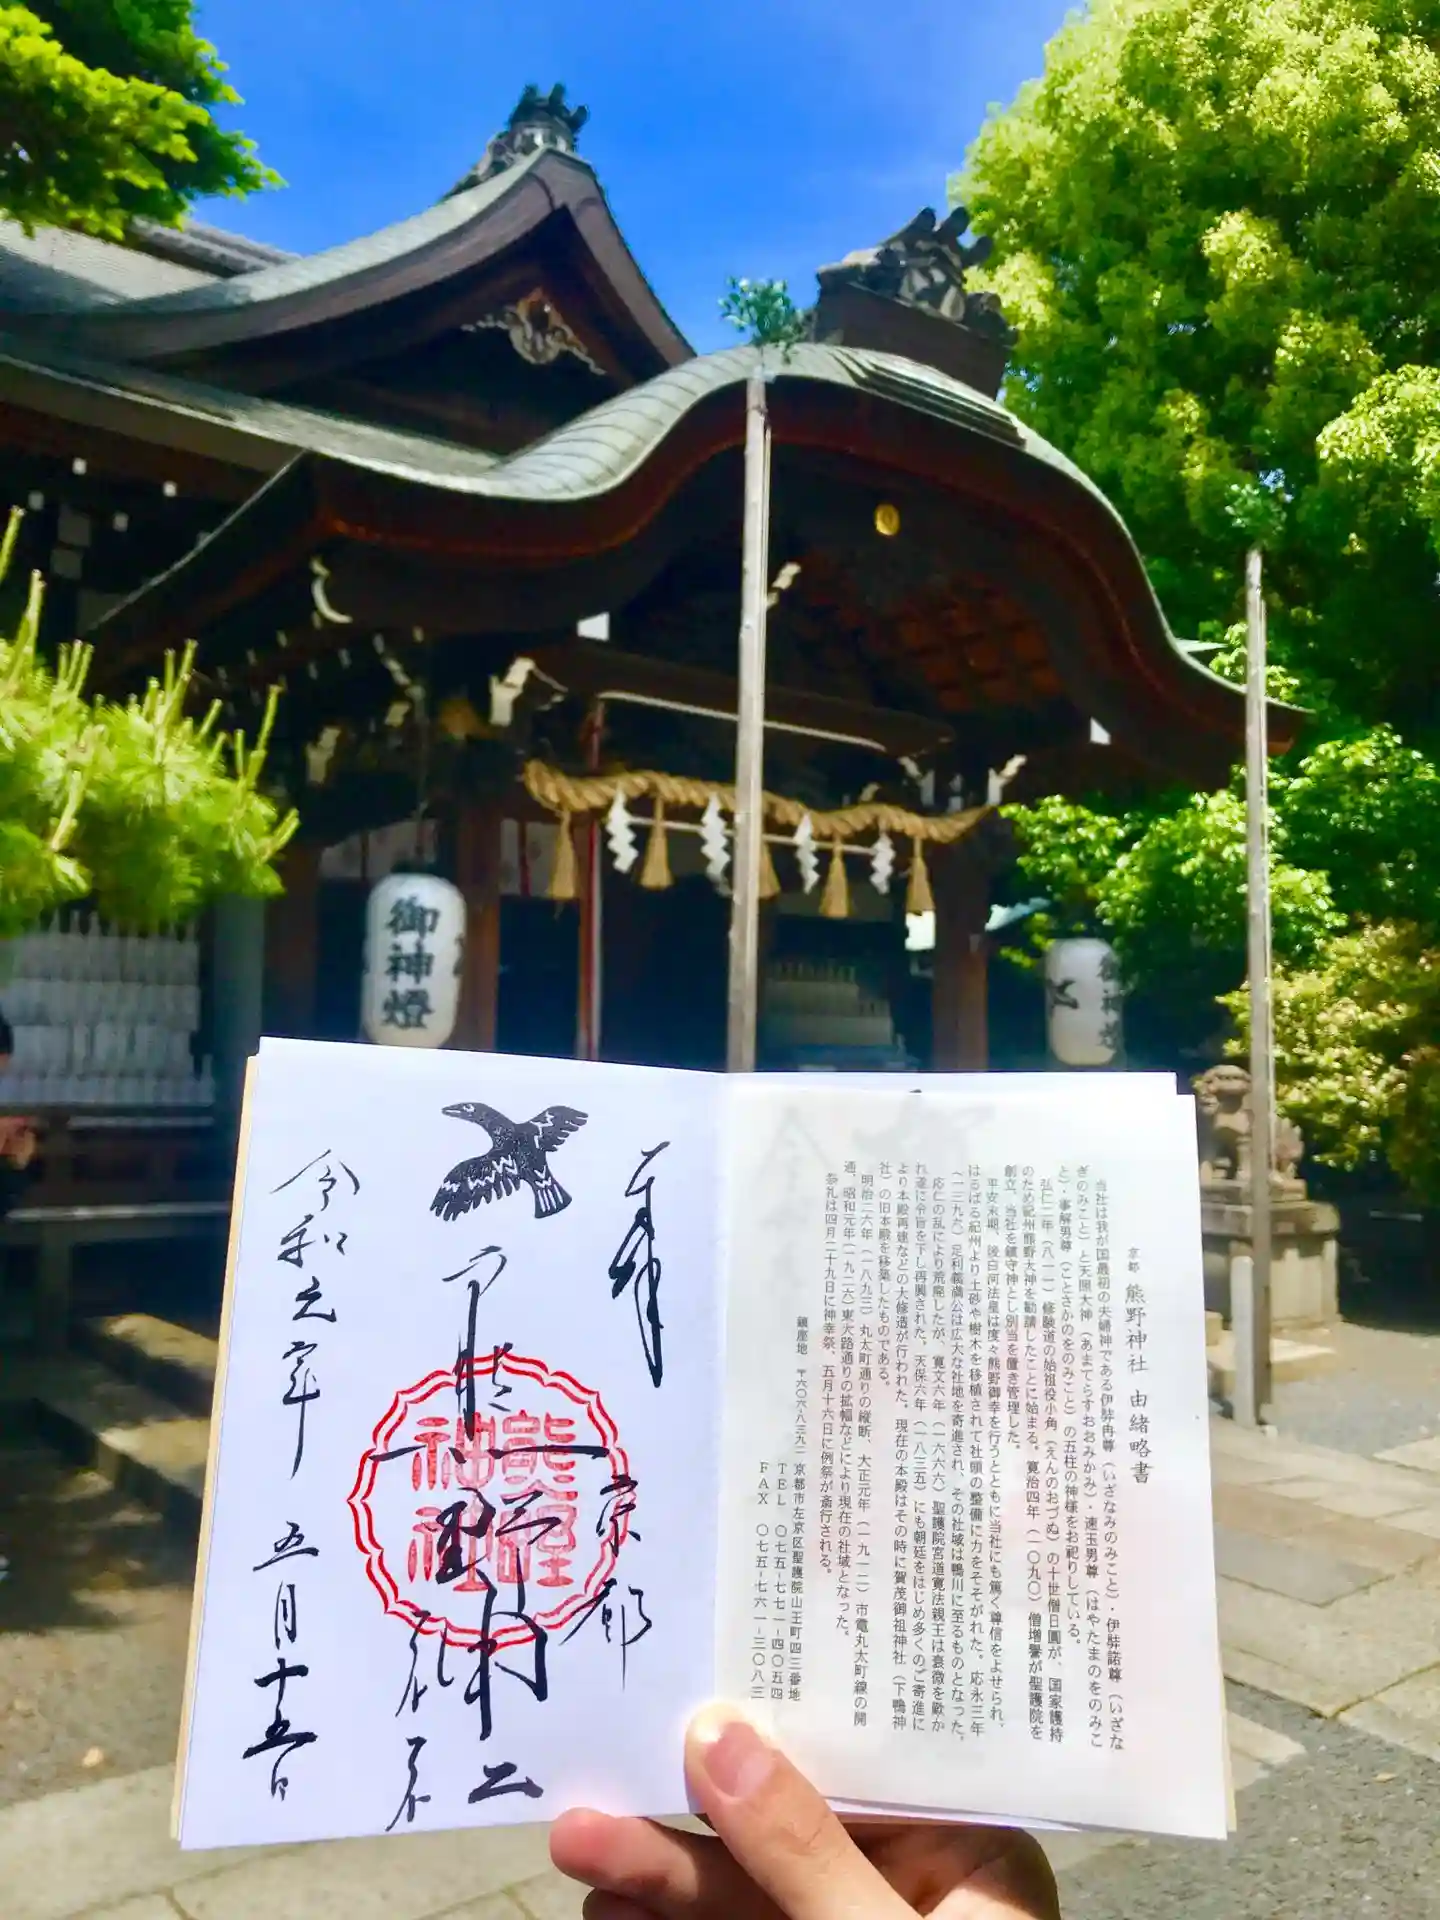 御神燈
御神燈
奉拝
京都
熊野神社
令和元年 五月十五日
京都 熊野神社 由緒略書
当社は我が国最初の夫婦神である伊弉冉尊(いざなみのみこと)・伊弉諾尊(いざな
ぎのみこと)と天照大神(あまてらすおおみかみ)・速玉男尊(はやたまのをのみこ
と)・事解男尊(ことさかのをのみこと)の五柱の神様をお祀りしている。
弘仁二年(八一一)修験道の始祖役小角(えんのおづぬ)の十世僧日圓が、国家護持
のため紀州熊野大神を勧請したことに始まる。寛治四年(一〇九〇)僧増誉が聖護院を
創立、当社を鎮守神とし別当を置き管理した。
平安末期、後白河法皇は度々熊野御幸を行うとともに当社にも篤く尊信をよせられ、
はるばる紀州より土砂や樹木を移植されて社頭の整備に力をそそがれた。応永三年
(一三九六)足利義満公は広大な社地を寄進され、その社域は鴨川に至るものとなった。
応仁の乱により荒廃したが、寛文六年(一六六六)聖護院宮道寛法親王は衰微を歎か
れ遂に令旨を下し再興された。天保六年(一八三五)にも朝廷をはじめ多くのご寄進に
より本殿再建などの大修造が行われた。現在の本殿はその時に賀茂御祖神社(下鴨神
社)の旧本殿を移築したものである。
明治二六年(一八九三)丸太町通りの縦断、大正元年(一九一二)市電丸太町線の開
通、昭和元年(一九二六)東大路通りの拡幅などにより現在の社域となった。
祭礼は四月二十九日に神幸祭、五月十六日に例祭が斎行される。
鎮座地 〒六〇六-八三九二 京都市左京区聖護院山王町四三番地
TEL 〇七五-七七一-四〇五四
FAX 〇七五-七六一-三〇八三